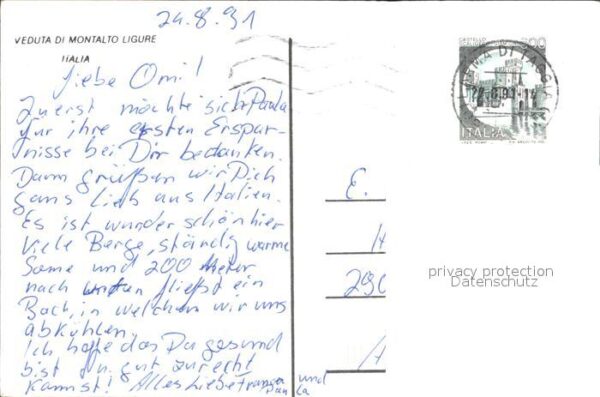 24.8.91
VEDUTA DI MONTALTO LIGURE
ITALIA
Liebe Omi!
Zuerst möchte sich Paula
für ihre ersten Erspar-
nisse bei Dir bedanken.
Dann grüßen wir Dich
ganz lieb aus Italien.
Es ist wunderschön hier
Viele Berge, ständig warme
Sonne und 200 Meter
nach unten fließt ein
Bach, in welchem wir uns
abkühlen.
Ich hoffe das Du gesund
bist u. gut zurecht
kannst! Alles Liebe
und
ITALIA
E.
290
privacy protection
Datenschutz